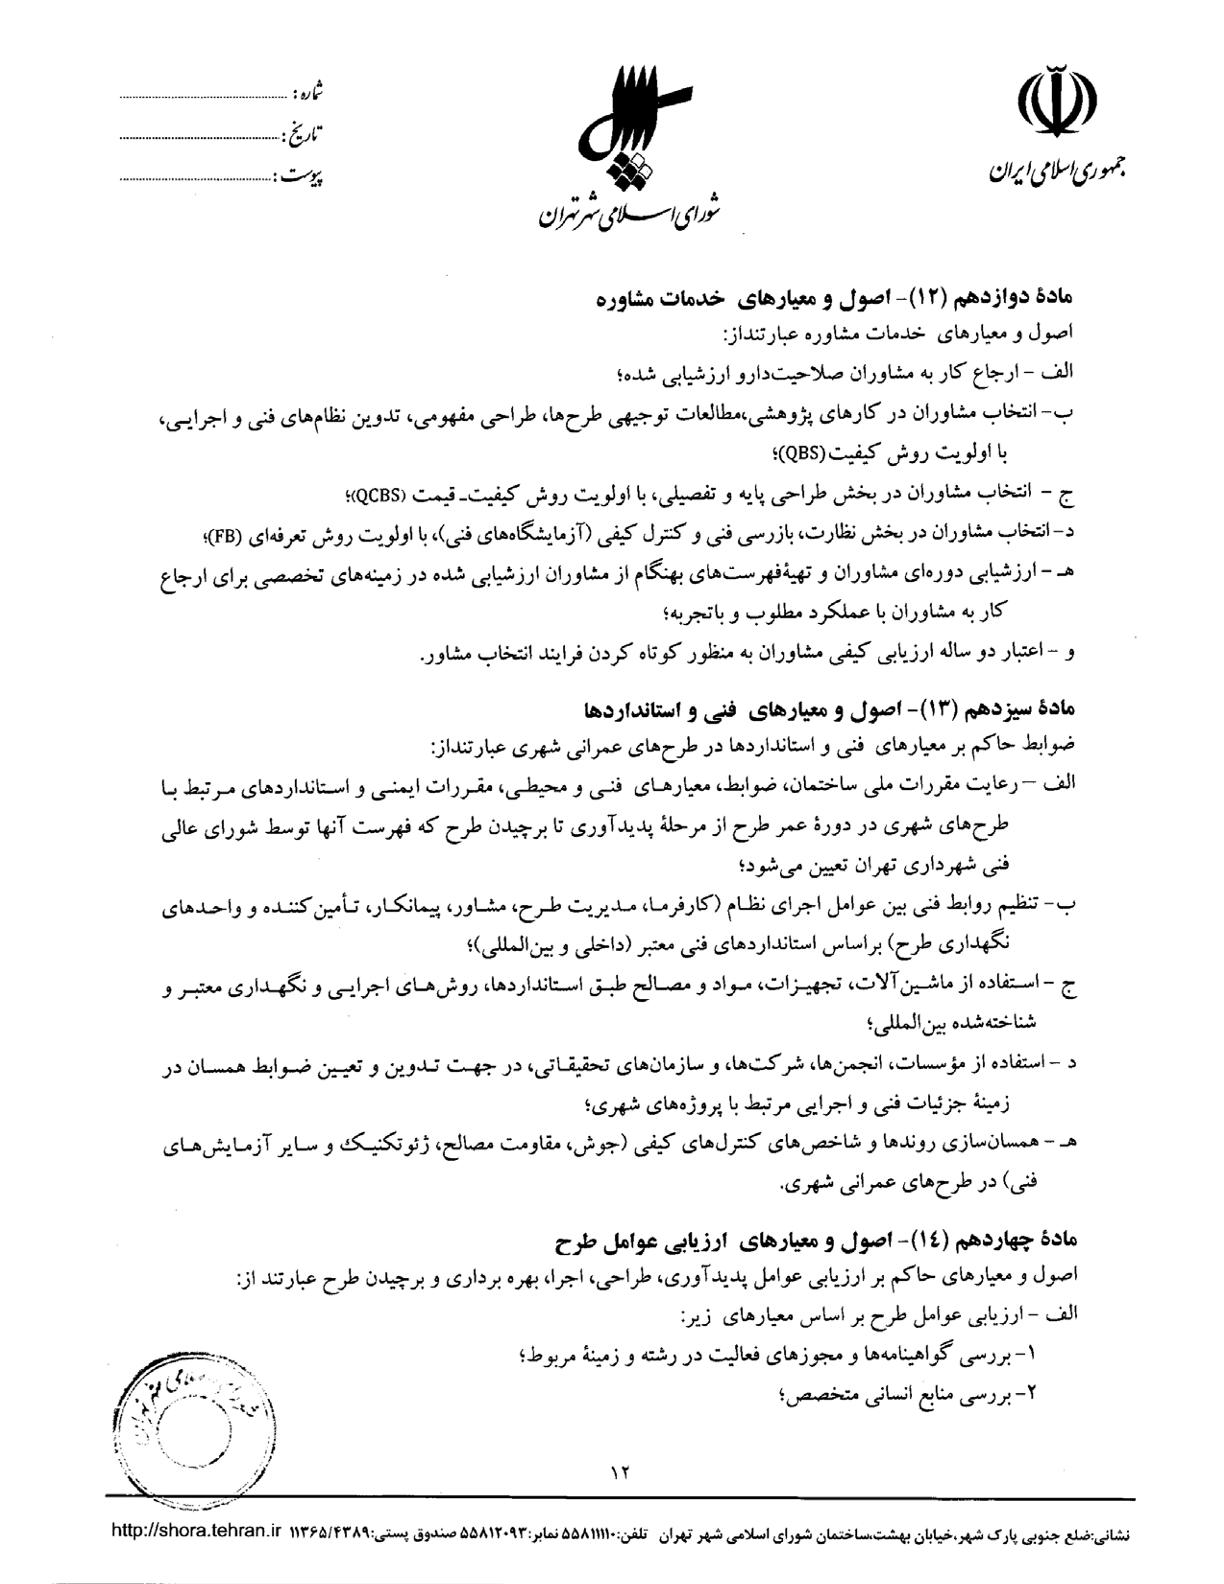 جمهوری اسلامی ایران
شورای اسلامی شهر تهران
شماره :
تاریخ :
پیوست :
مادهٔ دوازدهم (۱۲)- اصول و معیارهای خدمات مشاوره
اصول و معیارهای خدمات مشاوره عبارتنداز:
الف - ارجاع کار به مشاوران صلاحیت‌دارو ارزشیابی شده؛
ب- انتخاب مشاوران در کارهای پژوهشی،مطالعات توجیهی طرح‌ها، طراحی مفهومی، تدوین نظام‌های فنی و اجرایی،
با اولویت روش کیفیت(QBS)؛
ج - انتخاب مشاوران در بخش طراحی پایه و تفصیلی، با اولویت روش کیفیت- قیمت (QCBS)؛
د- انتخاب مشاوران در بخش نظارت، بازرسی فنی و کنترل کیفی (آزمایشگاه‌های فنی)، با اولویت روش تعرفه‌ای (FB)؛
هـ - ارزشیابی دوره‌ای مشاوران و تهیهٔ‌فهرست‌های بهنگام از مشاوران ارزشیابی شده در زمینه‌های تخصصی برای ارجاع
کار به مشاوران با عملکرد مطلوب و باتجربه؛
و - اعتبار دو ساله ارزیابی کیفی مشاوران به منظور کوتاه کردن فرایند انتخاب مشاور.
مادهٔ سیزدهم (۱۳)- اصول و معیارهای فنی و استانداردها
ضوابط حاکم بر معیارهای فنی و استانداردها در طرح‌های عمرانی شهری عبارتنداز:
الف – رعایت مقررات ملی ساختمان، ضوابط، معیارهای فنی و محیطی، مقررات ایمنی و استانداردهای مرتبط با
طرح‌های شهری در دورهٔ عمر طرح از مرحلهٔ پدیدآوری تا برچیدن طرح که فهرست آنها توسط شورای عالی
فنی شهرداری تهران تعیین می‌شود؛
ب- تنظیم روابط فنی بین عوامل اجرای نظام (کارفرما، مدیریت طرح، مشاور، پیمانکار، تأمین‌کننده و واحدهای
نگهداری طرح) براساس استانداردهای فنی معتبر (داخلی و بین‌المللی)؛
ج - استفاده از ماشین‌آلات، تجهیزات، مواد و مصالح طبق استانداردها، روش‌های اجرایی و نگهداری معتبر و
شناخته‌شده بین‌المللی؛
د - استفاده از مؤسسات، انجمن‌ها، شرکت‌ها، و سازمان‌های تحقیقاتی، در جهت تدوین و تعیین ضوابط همسان در
زمینهٔ جزئیات فنی و اجرایی مرتبط با پروژه‌های شهری؛
هـ - همسان‌سازی روندها و شاخص‌های کنترل‌های کیفی (جوش، مقاومت مصالح، ژئوتکنیک و سایر آزمایش‌های
فنی) در طرح‌های عمرانی شهری.
مادهٔ چهاردهم (۱۴)- اصول و معیارهای ارزیابی عوامل طرح
اصول و معیارهای حاکم بر ارزیابی عوامل پدیدآوری، طراحی، اجرا، بهره برداری و برچیدن طرح عبارتند از:
الف - ارزیابی عوامل طرح بر اساس معیارهای زیر:
۱- بررسی گواهینامه‌ها و مجوزهای فعالیت در رشته و زمینهٔ مربوط؛
۲- بررسی منابع انسانی متخصص؛
۱۲
نشانی:ضلع جنوبی پارک شهر،خیابان بهشت،ساختمان شورای اسلامی شهر تهران تلفن:۵۵۸۱۱۱۱۰ نمابر:۵۵۸۱۲۰۹۳ صندوق پستی:۱۱۳۶۵/۴۳۸۹ http://shora.tehran.ir